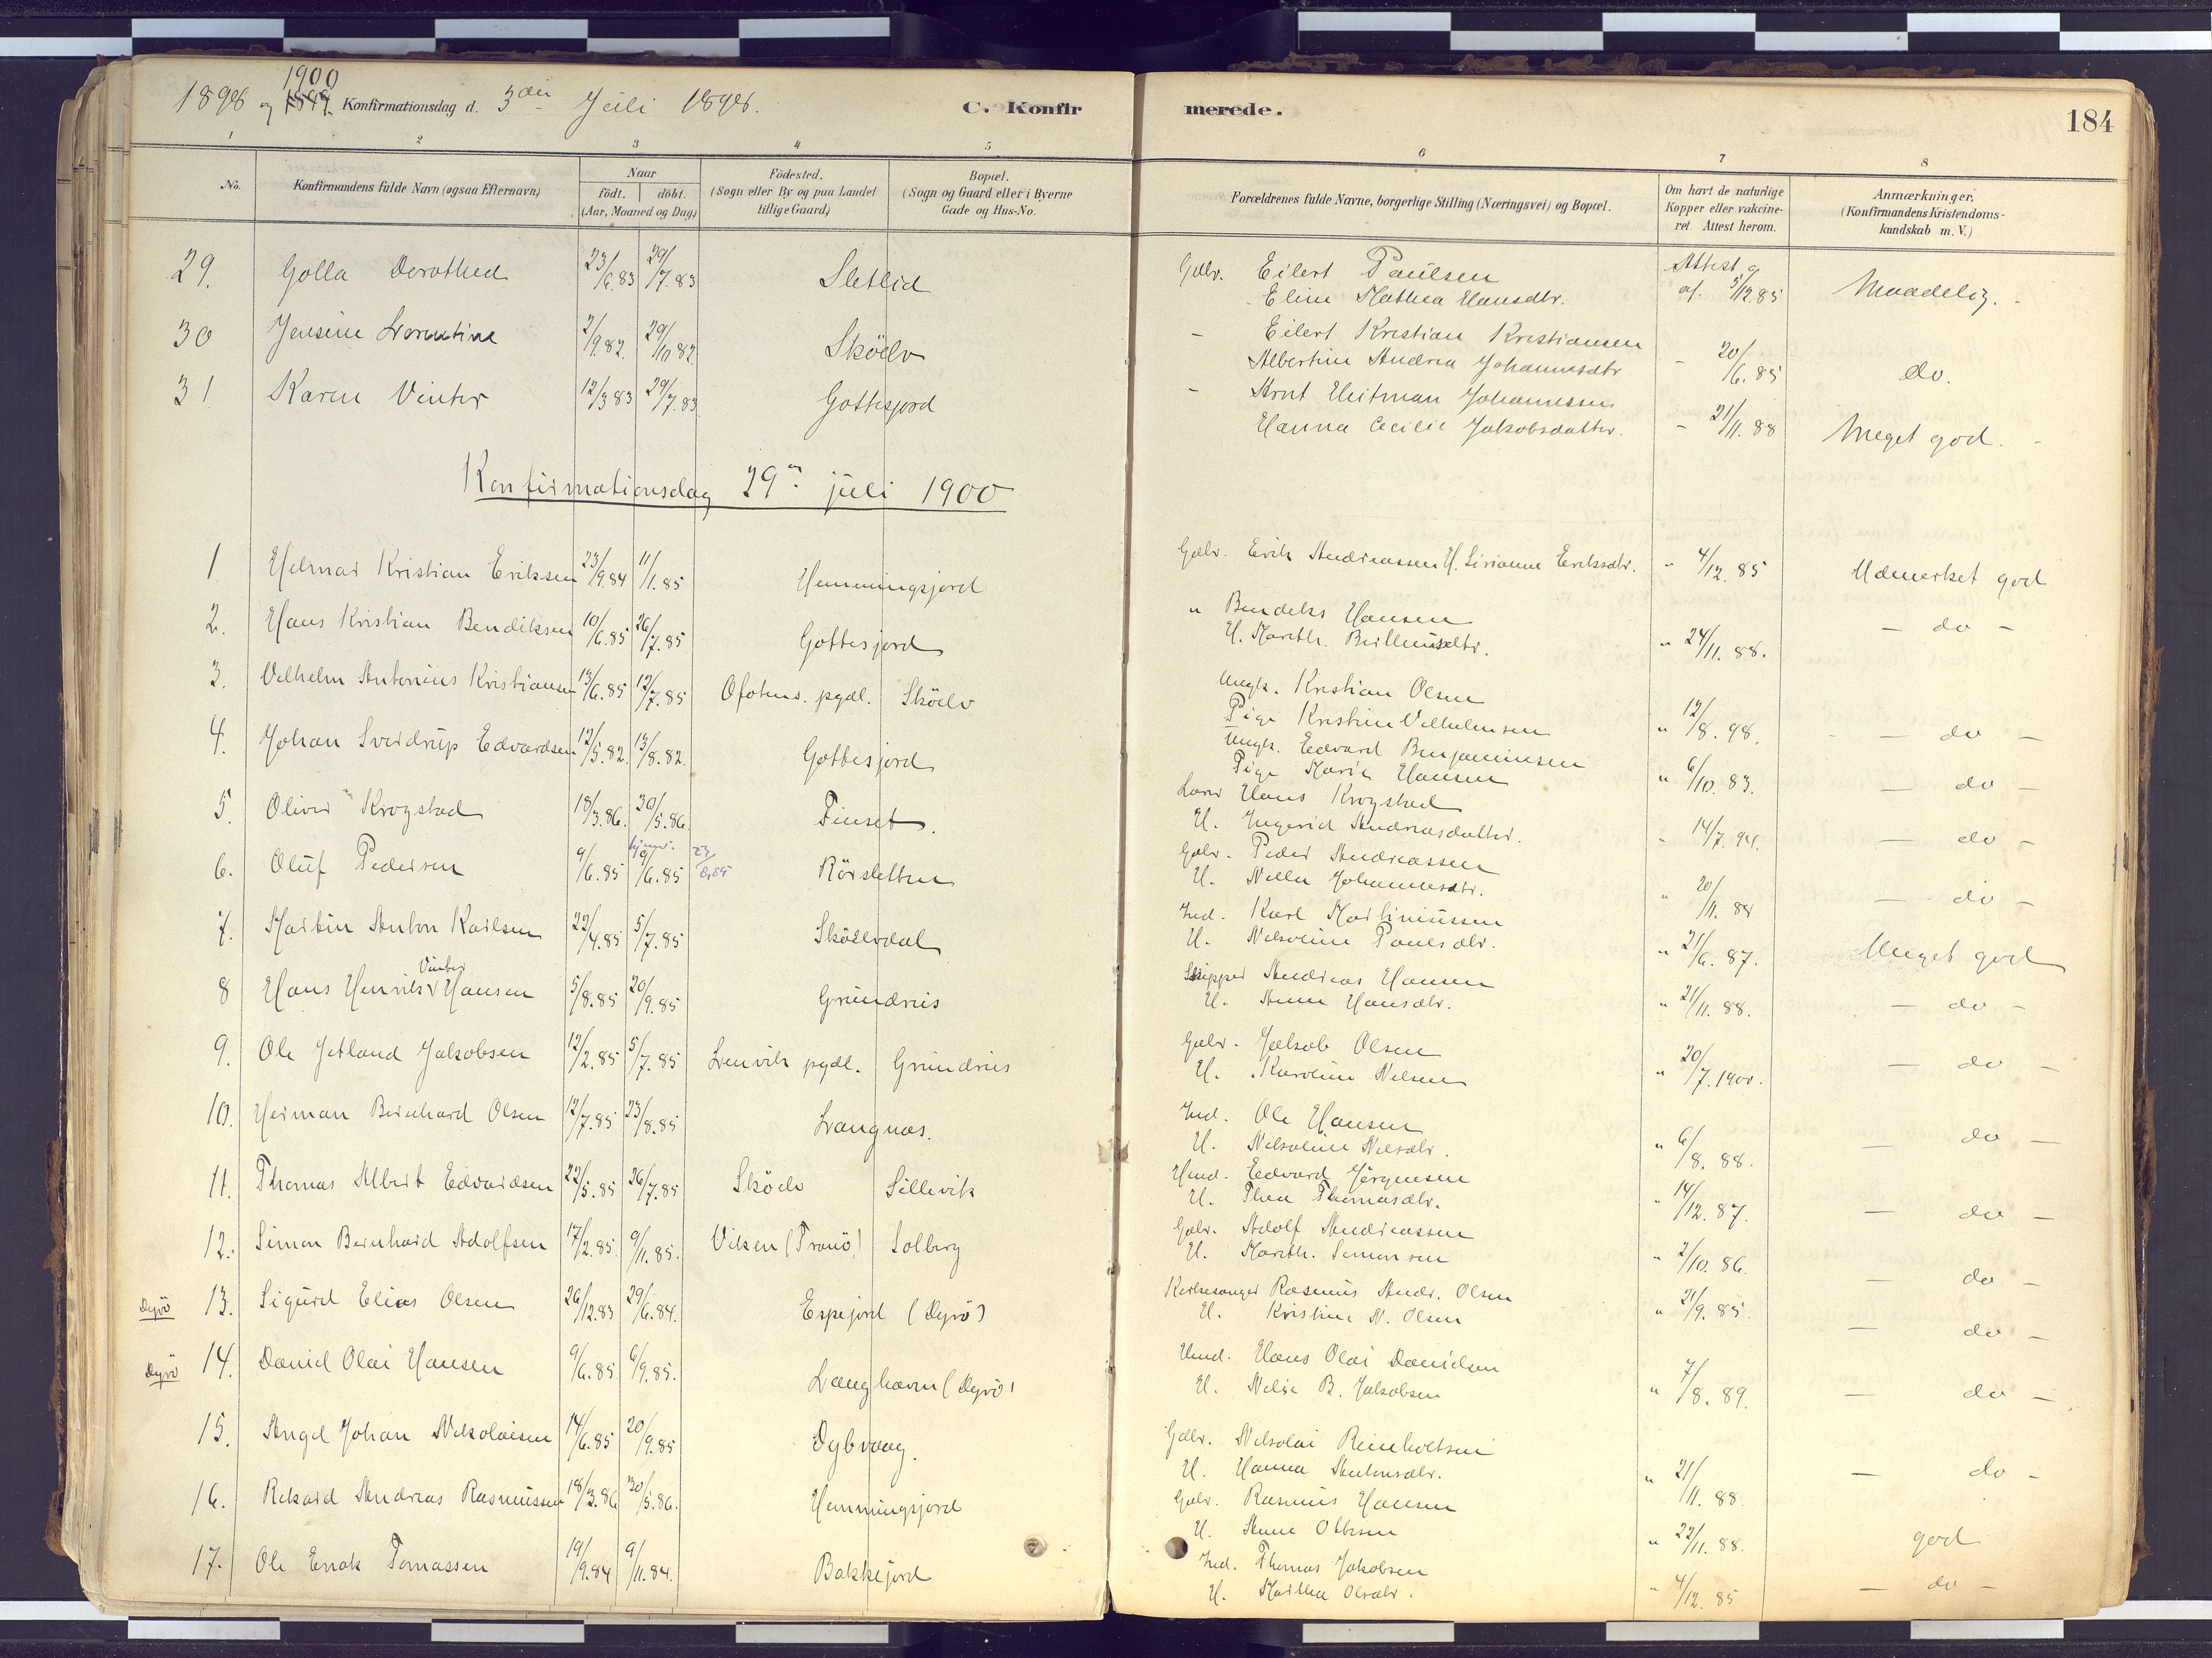 1898 og 1900 1899. Konfirmationsdag d. 3die Juli 1898. C. Konfirmerede. 184
1 2 3 4 5 6 7 8
No. Konfirmandens fulde Navn (ogsaa Efternavn) Naar födt. döbt. (Aar, Maaned og Dag) Födested. (Sogn eller By og paa Landet tillige Gaard) Bopæl. (Sogn og Gaard eller i Byerne Gade og Hus-No. Forældrenes fulde Navne, borgerlige Stilling (Næringsvei) og Bopæl. Om havt de naturlige Kopper eller vakcineret. Attest herom. Anmærkninger, (Konfirmandens Kristendomskundskab m. V.)
29. Golla Dorothea 23/6.83 29/7.83 Sletlid Gdbr. Eilert Paulsen Attest af 5/12.85 Maadelig.
Eline Mathea Hansdtr.
30 Jensine Lorentine 2/9.82 29/10 82 Sköelv – Eilert Kristian Kristiansen – 20/6.85 do.
Albertine Andrea Johannesdtr
31 Karen Vinter 12/3 83 29/7.83 Gottesjord – Arnt Heitman Johannessen – 21/11.88 Meget god.
Hanna Cecilie Jakobsdatter.
Konfirmationsdag 29de juli 1900
1. Helmar Kristian Eriksen 23/9.84 11/1.85 Hemmingsjord Gdbr. Erik Andreassen H. Sirianna Eriksdtr. " 4/12.85 Udmerket god
2. Hans Kristian Bendiksen 10/6.85 26/7.85 Gottesjord " Bendiks Hansen " 24/11.88. – do –
H. Mareth.
3. Vilhelm Antonius Kristiansen 13/6.85 12/7.85 Ofotens. pgdl. Sköelv Ungk. Kristian Olsen " 12/8.98. – do –
Pige Kristine Vilhelmsen
4. Johan Sverdrup Edvardsen 12/5.82. 13/8.82. Gottesjord Ungk. Edvard Benjaminsen " 6/10.83. – do –
Pige Marie Hansen
5. Oliver Krogstad 18/3.86. 30/5.86. Finset. Lærer Hans Krogstad " 14/7.94. – do –
H. Ingerid Andreasdatter.
6. Oluf Pedersen 9/6.85 hjemd. 9/6.85 23/8.85 Rörsletten Gdbr. Peder Andreassen " 20/11.84 – do –
H. Johannesdtr.
7. Martin Anton Karlsen 22/4.85 5/7.85 Sköelvdal Ind. Karl Martinussen " 21/6.87. Meget god
H. Nikoline Paulsdtr.
8 Hans Henrik Vinter Hansen 5/8.85 20/9.85 Grundnes Skipper Andreas Hansen " 21/11.88. – do –
H. Anne Hansdtr.
9. Ole Jetland Jakobsen 12/2.85 5/7.85 Lenvik pgdl. Grundnes Gdbr. Jakob Olsen " 20/7.1900. – do –
H. Karoline Nilsen
10. Herman Bernhard Olsen 12/7.85 23/8.85 Langnes. Ind. Ole Hansen " 6/8.88. – do –
H. Nikoline Nilsdtr.
11. Thomas Albert Edvardsen 22/5.85 26/7.85 Sköelv Sillevik Hmd. Edvard Jörgensen " 14/12.87. – do –
H. Thea Thomasdtr.
12. Simon Bernhard Adolfsen 17/2.85. 9/11.85. Viken (Tranö) Solberg Gdbr. Adolf Andreassen " 2/10.86. – do –
H. Mareth. Simonsen
Dyrö 13. Sigurd Elias Olsen 26/12.83 29/6.84. Espejord (Dyrö) Kirkesanger Rasmus Andr. Olsen " 21/9.85. – do –
H. Kristine N. Olsen
Dyrö 14. Daniel Olai Hansen 9/6.85 6/9.85. Langhavn (Dyrö) Hmd. Hans Olai Danielsen " 7/8.89. – do –
H. B. Jakobsen
15. Angel Johan Nikolaisen 14/6.85 20/9.85 Dybvaag. Gdbr. Nikolai Reinholtsen " 21/11.88. – do –
H. Hanna Antonsdtr.
16. Rikard Andreas Rasmussen 18/3.86 30/5.86. Hemmingsjord Gdbr. Rasmus Hansen " 22/11.88. god
H. Anne Ottesen
17. Ole Enok Tomassen 19/9.84 9/11.84. Bakkejord Ind. Thomas Jakobsen " 4/12.85 – do –
H. Martha Olsdtr.